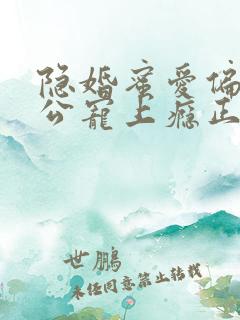 隐婚蜜爱偏
公宠上瘾正
世鹏
未经同意禁止转载